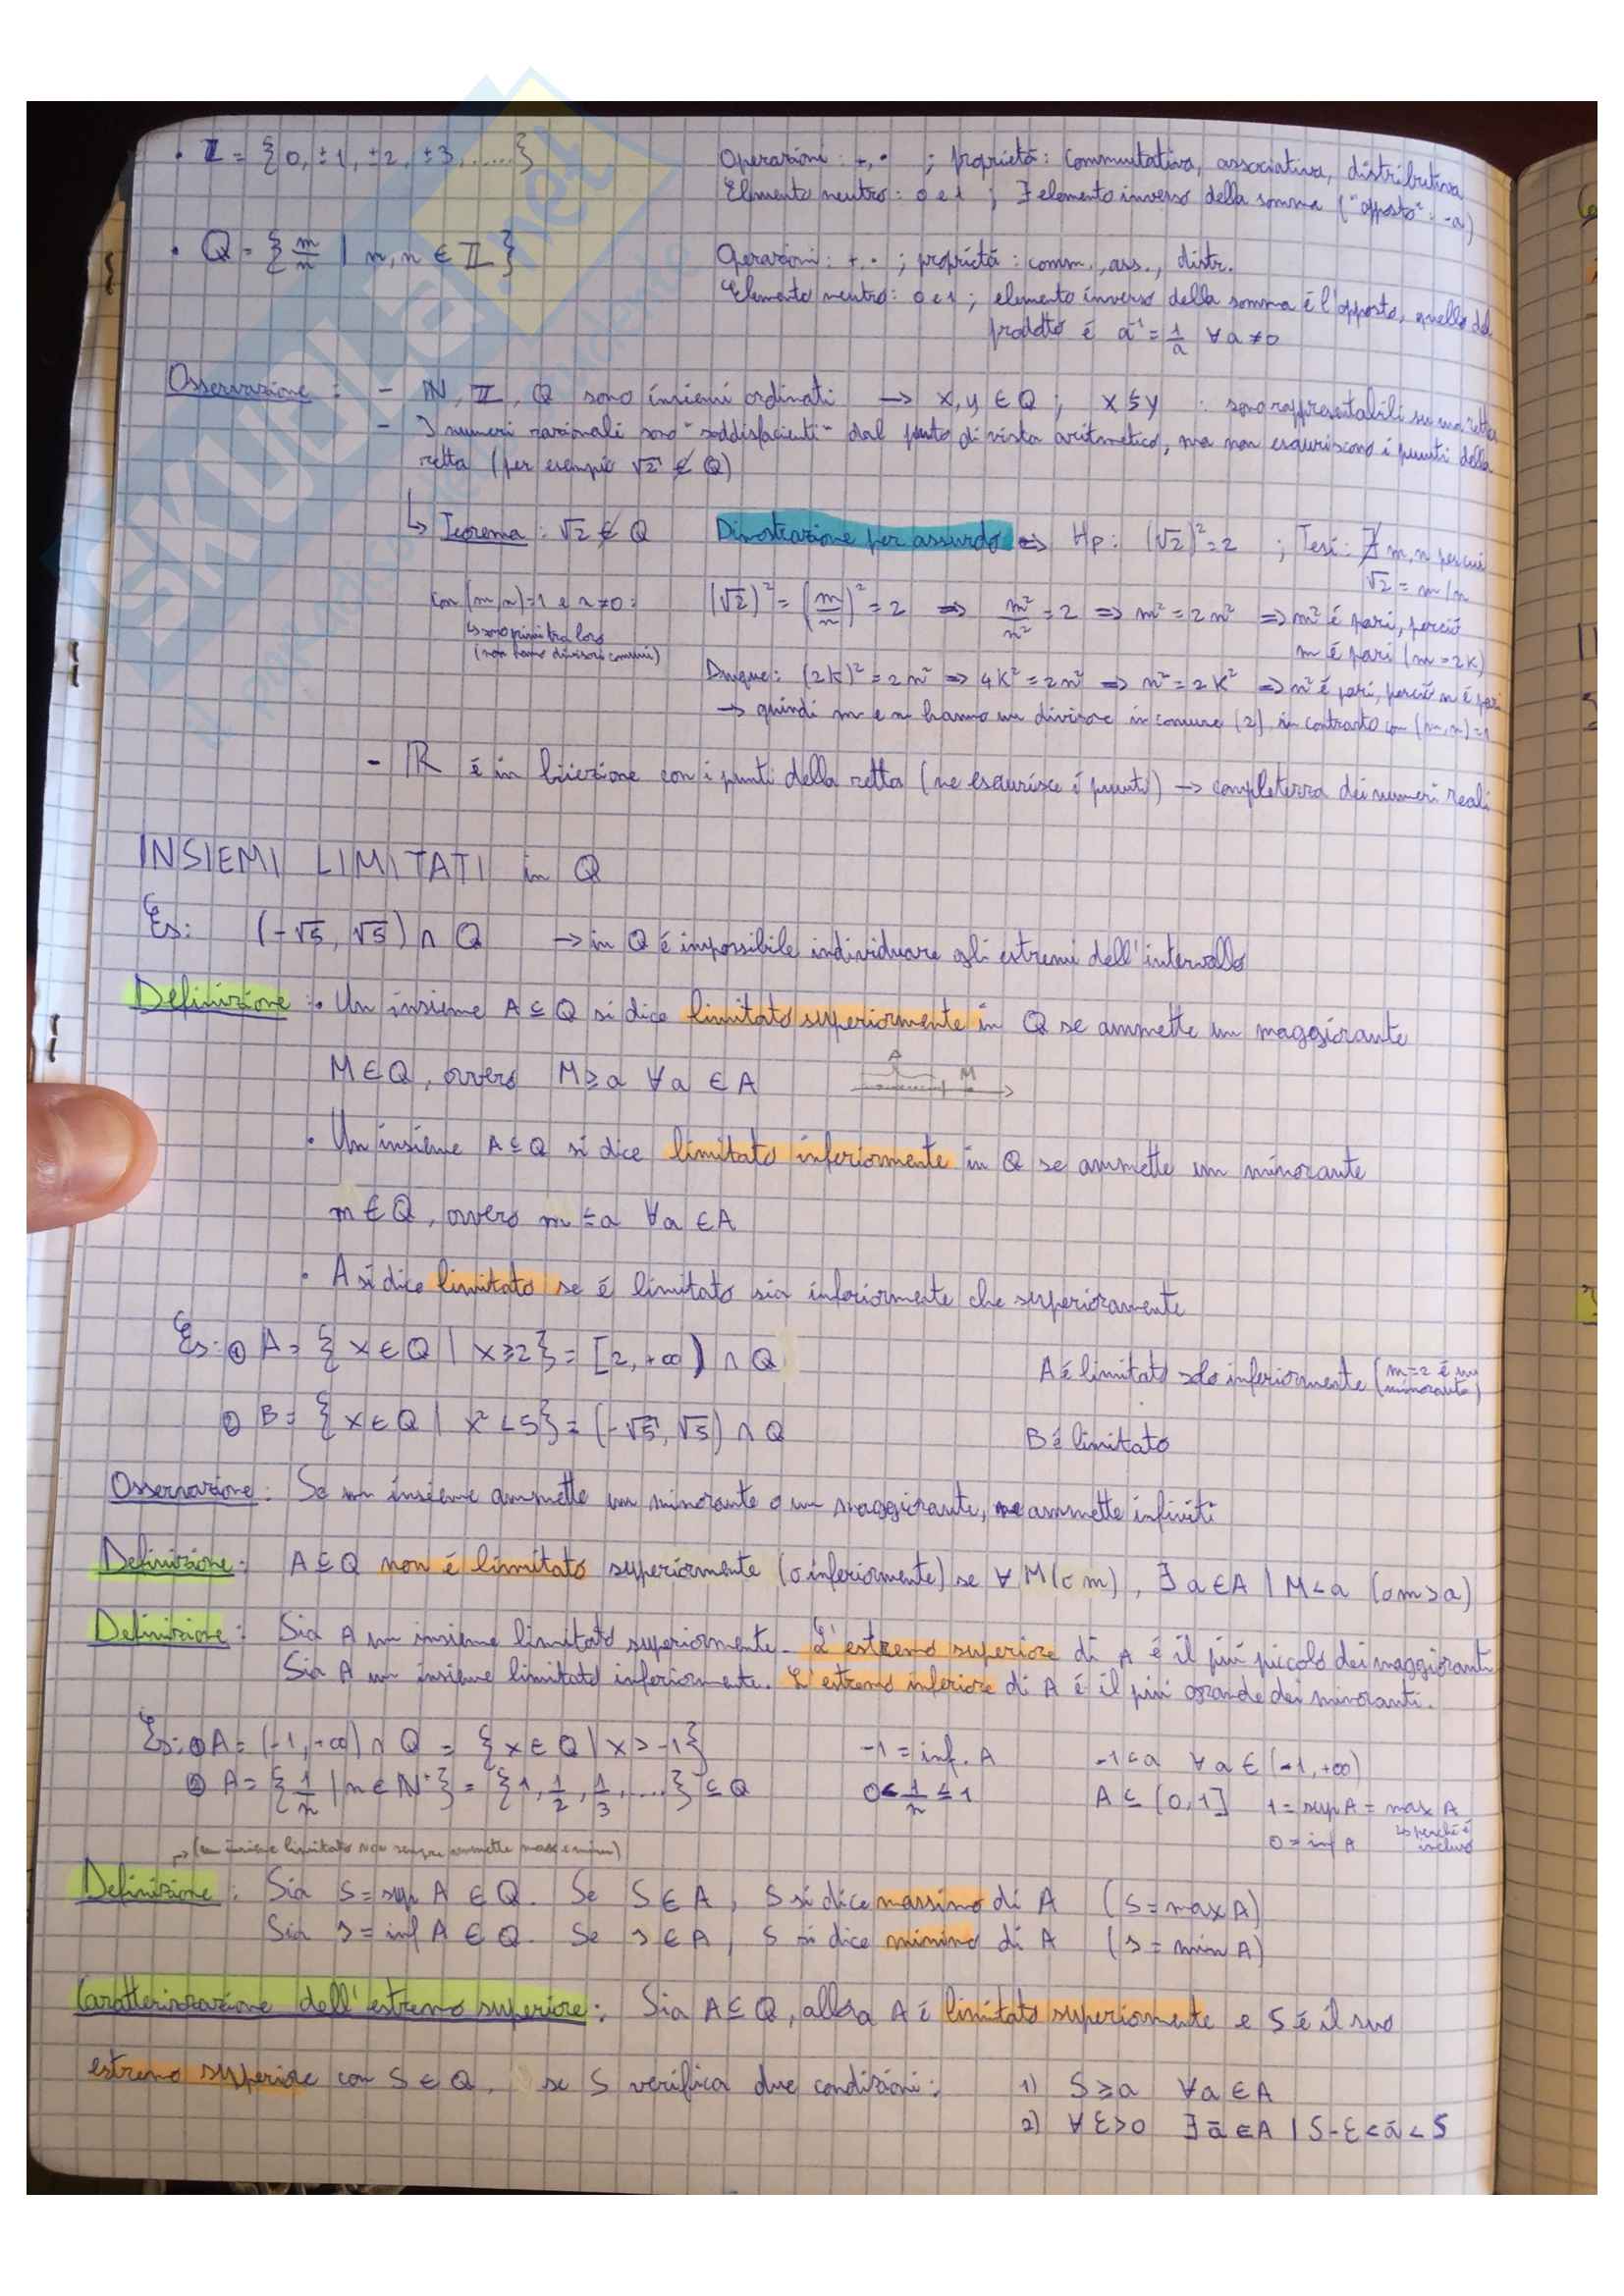 • ℤ = {0, ±1, ±2, ±3, .....} Operazioni: +, • ; proprietà: commutativa, associativa, distributiva
Elemento neutro: 0 e 1 ; ∃ elemento inverso della somma ("opposto": -a)
• Q = {m/n | m, n ∈ ℤ} Operazioni: +, • ; proprietà: comm., ass., distr.
Elemento neutro: 0 e 1 ; elemento inverso della somma é l'opposto, quello del
prodotto é a⁻¹ = 1/a ∀a ≠ 0
Osservazione: - N, ℤ, Q sono insiemi ordinati → x, y ∈ Q ; x ≤ y : sono rappresentabili su una retta
- I numeri razionali sono "soddisfacienti" dal punto di vista aritmetico, ma non esauriscono i punti della
retta (per esempio √2 ∉ Q)
↳ Teorema: √2 ∉ Q Dimostrazione per assurdo ⇒ Hp: (√2)² = 2 ; Tesi: ∄ m, n per cui
√2 = m/n
con (m,n)=1 e n≠0: (√2)² = (m/n)² = 2 ⇒ m²/n² = 2 ⇒ m² = 2n² ⇒ m² é pari, perció
↳ sono primi tra loro
(non hanno divisori comuni) m é pari (m = 2k)
Dunque: (2k)² = 2n² ⇒ 4k² = 2n² ⇒ n² = 2k² ⇒ n² é pari, perció n é pari
→ quindi m e n hanno un divisore in comune (2) in contrasto con (m,n)=1
- ℝ é in biiezione con i punti della retta (ne esaurisce i punti) → completezza dei numeri reali
INSIEMI LIMITATI in Q
Es: (-√5, √5) ∩ Q → in Q é impossibile individuare gli estremi dell'intervallo
Definizione: • Un insieme A ⊆ Q si dice limitato superiormente in Q se ammette un maggiorante
M ∈ Q, ovvero M ≥ a ∀a ∈ A
A M
• Un insieme A ⊆ Q si dice limitato inferiormente in Q se ammette un minorante
m ∈ Q, ovvero m ≤ a ∀a ∈ A
• A si dice limitato se é limitato sia inferiormente che superiormente
Es: ① A = {x ∈ Q | x ≥ 2} = [2, +∞) ∩ Q A é limitato solo inferiormente (m=2 é un minorante)
② B = {x ∈ Q | x² < 5} = (-√5, √5) ∩ Q B é limitato
Osservazione: Se un insieme ammette un minorante o un maggiorante, ne ammette infiniti
Definizione: A ⊆ Q non é limitato superiormente (o inferiormente) se ∀ M (o m), ∃ a ∈ A | M < a (o m > a)
Definizione: Sia A un insieme limitato superiormente. L'estremo superiore di A é il piú piccolo dei maggioranti
Sia A un insieme limitato inferiormente. L'estremo inferiore di A é il piú grande dei minoranti.
Es: ① A = (-1, +∞) ∩ Q = {x ∈ Q | x > -1} -1 = inf. A -1 < a ∀a ∈ (-1, +∞)
② A = {1/n | n ∈ N⁺} = {1, 1/2, 1/3, ....} ⊆ Q 0 < 1/n ≤ 1 A ⊆ (0, 1] 1 = sup A = max A
↳ perché é incluso
0 = inf A
→ (un insieme limitato non sempre ammette max e min)
Definizione: Sia S = sup A ∈ Q. Se S ∈ A, S si dice massimo di A (S = max A)
Sia s = inf A ∈ Q. Se s ∈ A, s si dice minimo di A (s = min A)
Caratterizzazione dell'estremo superiore: Sia A ⊆ Q, allora A é limitato superiormente e S é il suo
estremo superiore con S ∈ Q, se S verifica due condizioni: 1) S ≥ a ∀a ∈ A
2) ∀ ε > 0 ∃ ā ∈ A | S - ε < ā < S